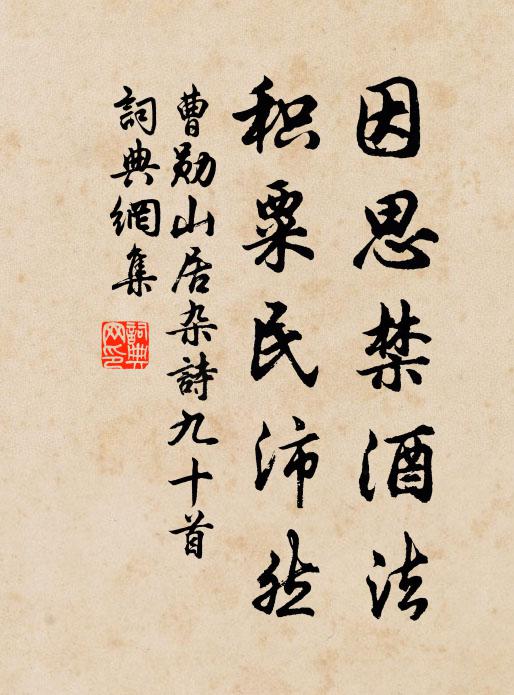 因思禁酒法
积粟民沛然
曹勋山居杂詩九十首
詞典網集
詞典網印